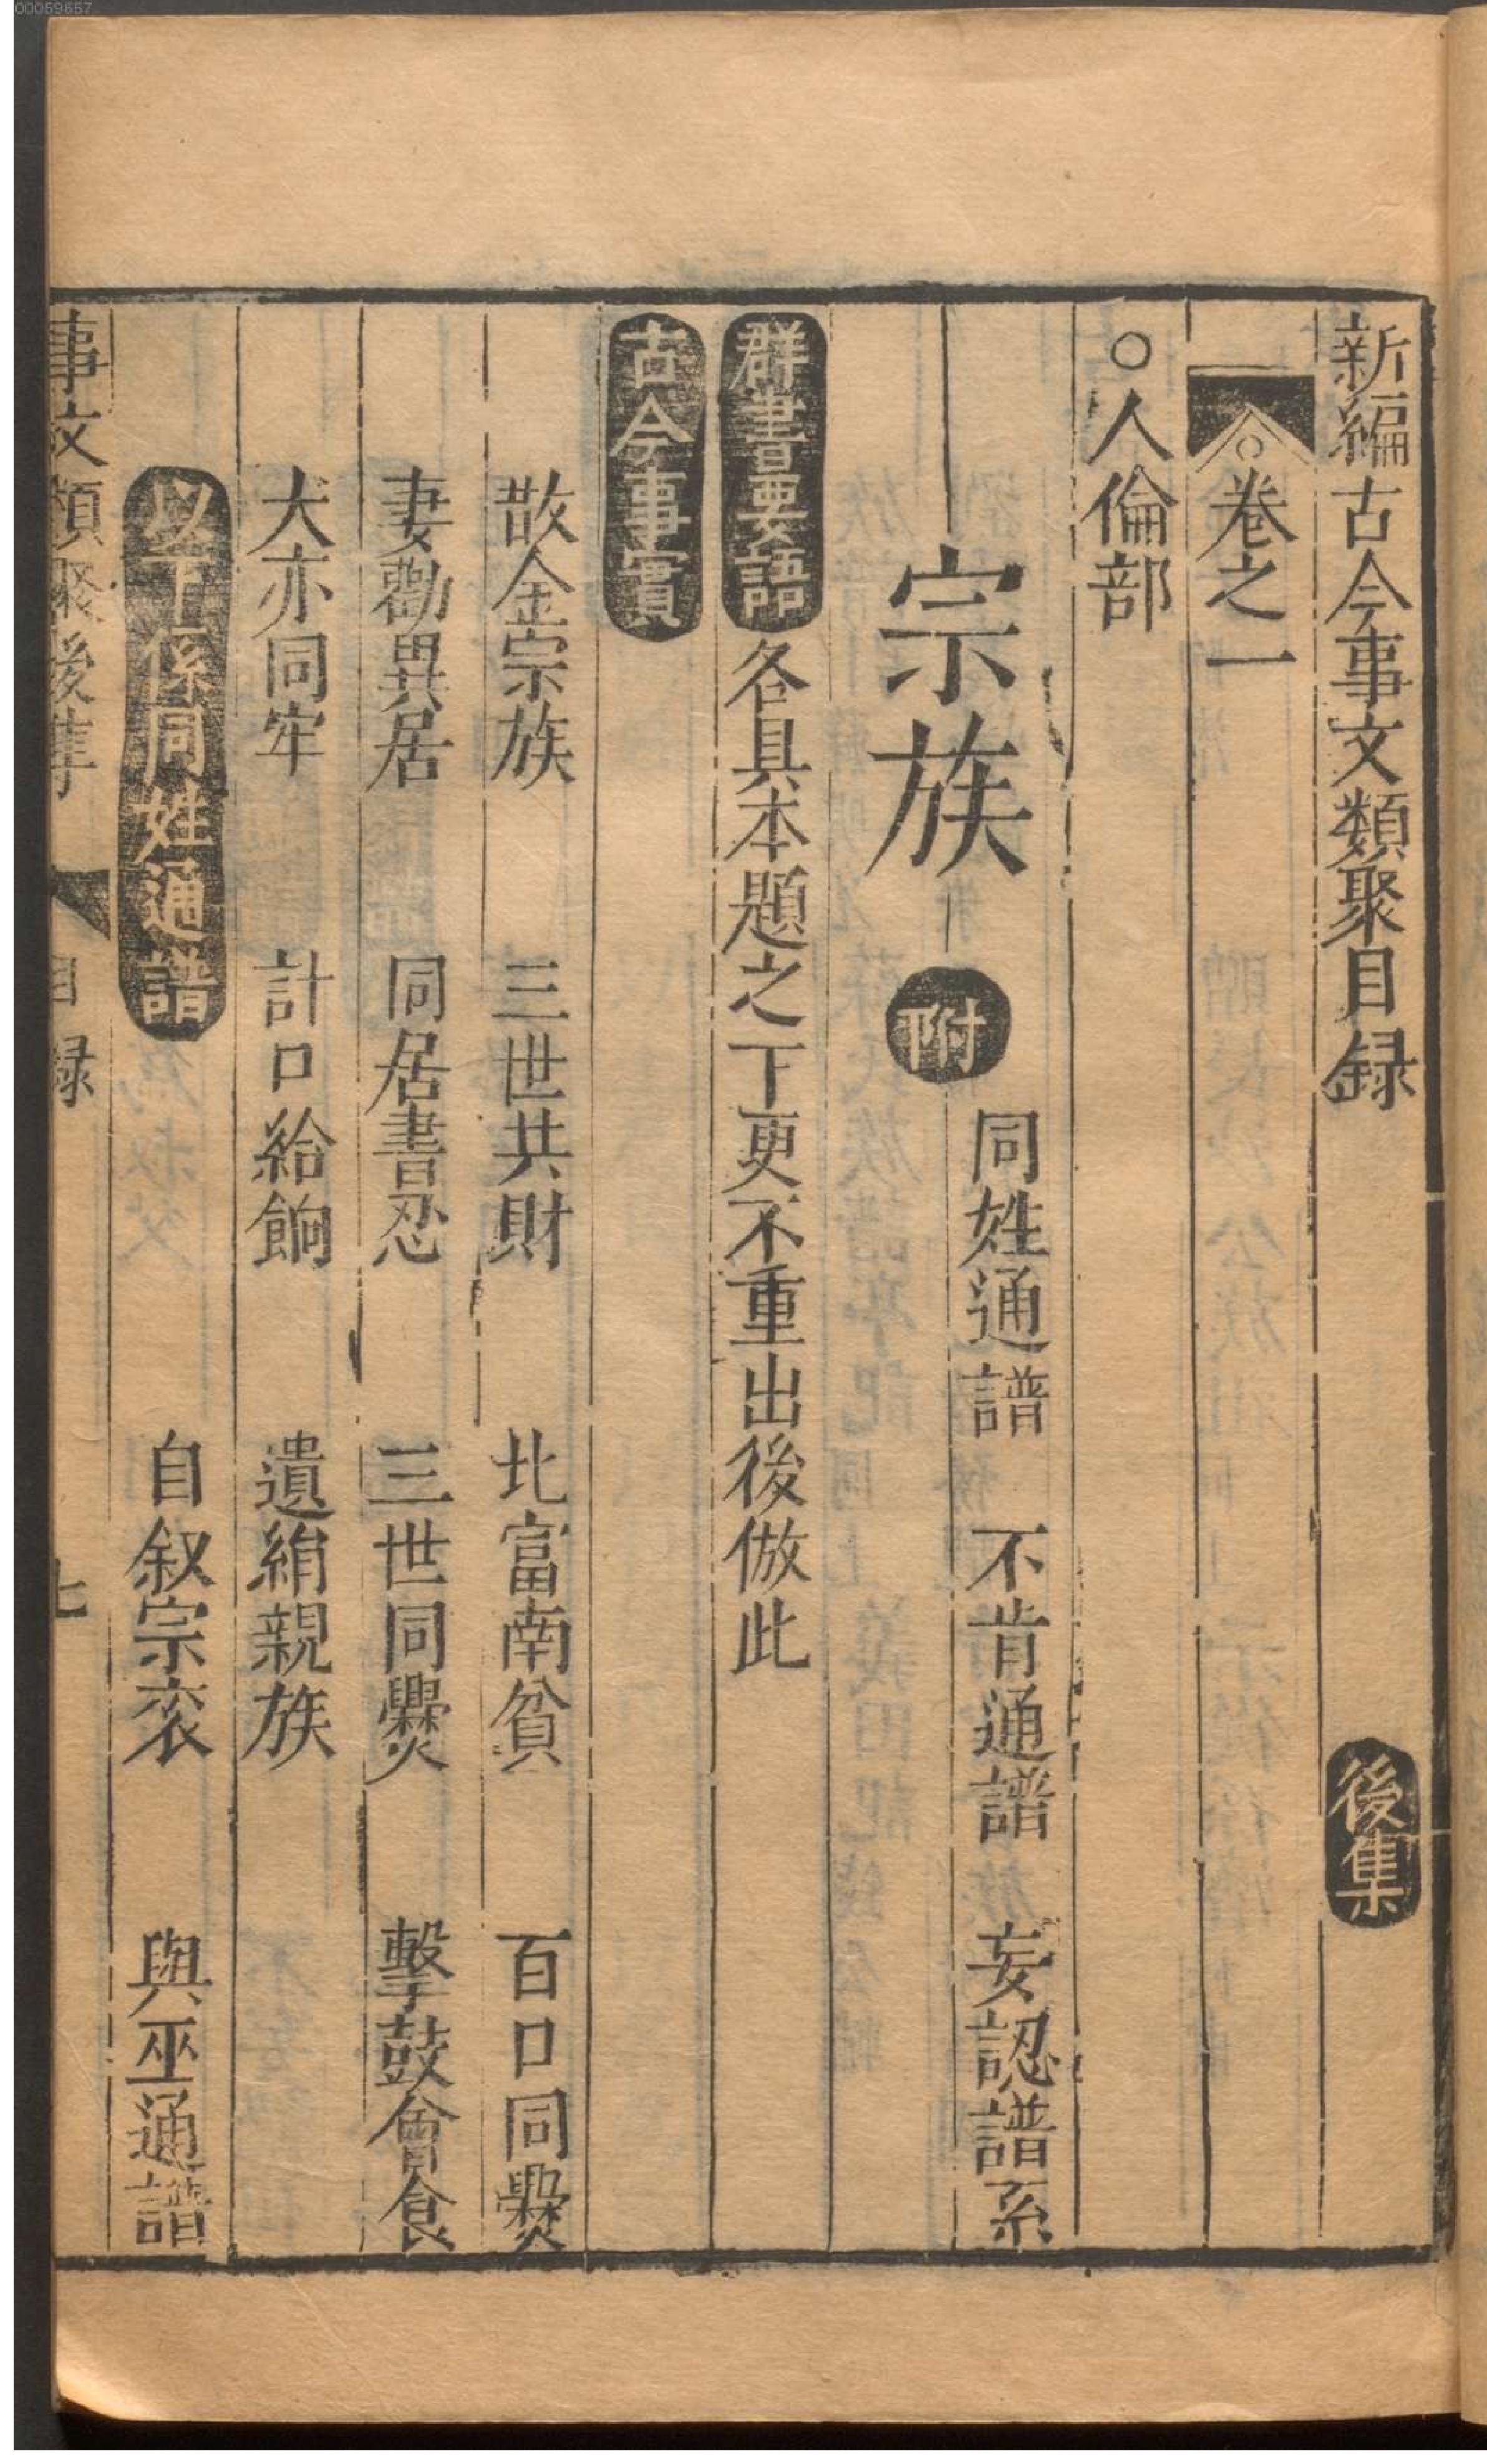 00059657
新編古今事文類聚目録 後集
○卷之一
○人倫部
宗族 附 同姓通譜 不肯通譜 妄認譜系
群書要語 各具本題之下更不重出後倣此
古今事實
散金宗族 三世共財 北富南貧 百口同爨
妻勸異居 同居書忍 三世同爨 擊鼓會食
犬亦同牢 計口給餉 遺絹親族
以下係同姓通譜 自叙宗衮 與巫通譜
事文類聚後集 目録